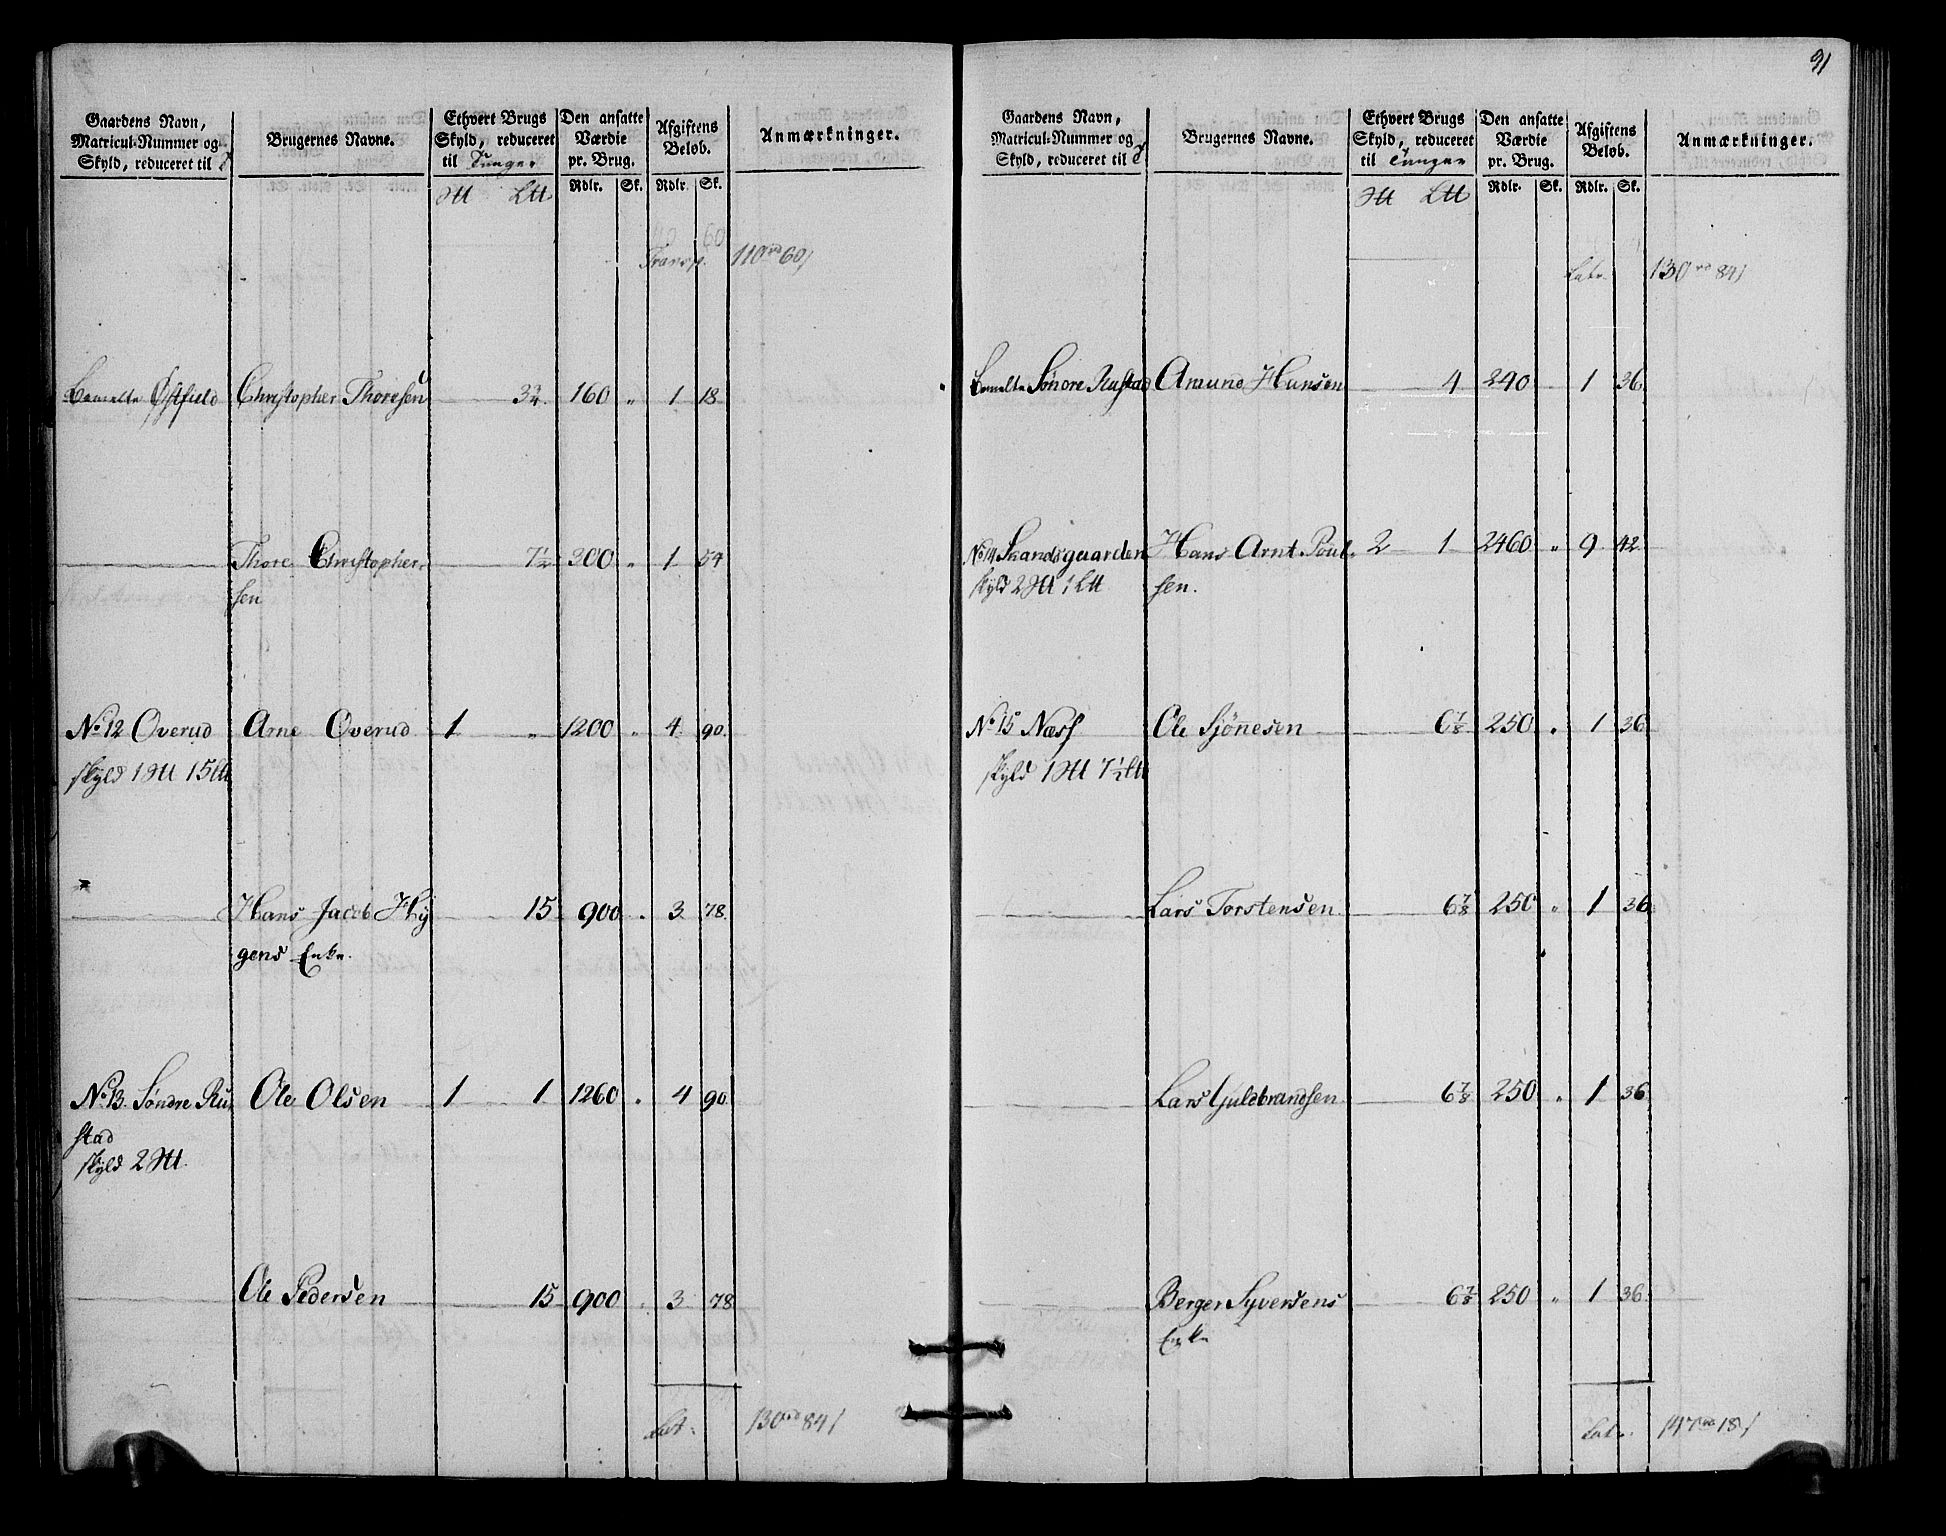 Gaardens Navn,
Matricul-Nummer og
Skyld, reduceret til
Brugernes Navne.
Ethvert Brugs
Skyld, reduceret
til Tunger
Den ansatte
Værdie
pr. Brug.
Afgiftens
Beløb.
Anmærkninger.
Rdlr. Sk. Rdlr. Sk.
Transp. 110 rd 60 /
Bemelte Østfield Christopher Thoresen 3 3/4 160 " 1 18
Thore Christopher- 7 1/2 300 " 1 54
sen
No 12 Overud Arne Overud 1 " 1200 " 4 90
skyld 1 15
Hans Jacob Hy 15 900 " 3 78
gens Enke.
No 13 Søndre Ru- Ole Olsen 1 1 1260 " 4 90
stad
skyld 2
Ole Pedersen 15 900 " 3 78
Lat: 130 rd 84 /
31
Gaardens Navn,
Matricul-Nummer og
Skyld, reduceret til
Brugernes Navne.
Ethvert Brugs
Skyld, reduceret
til Tunger
Den ansatte
Værdie
pr. Brug.
Afgiftens
Beløb.
Anmærkninger.
Rdlr. Sk. Rdlr. Sk.
Latr. 130 rd 84 /
Bemelte Sønore Rustad Amund Hansen 4 240 1 36
No 14 Skandsgaarden Hans Arnt Poul- 2 1 2460 " 9 42
skyld 2 1 sen.
No 15 Næss Ole Sjönesen 6 7/8 250 " 1 36
skyld 1 7 1/2
Lars Torstensen 6 7/8 250 " 1 36
Lars Guldbrandsen 6 7/8 250 " 1 36
Berger Syversens 6 7/8 250 " 1 36
Enke
Latr. 147 rd 18 /